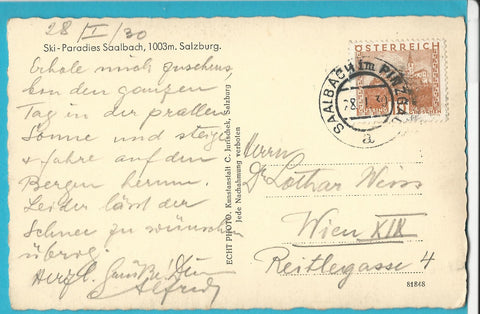 28/I/30
Ski-Paradies Saalbach, 1003m. Salzburg.
Erhole mich zusehens,
bin den ganzen
Tag in der prallen
Sonne und steige
& fahre auf den
Bergen herum.
Leider lässt der
Schnee zu wünschen
übrig.
Herzl. Grüße! Dein
Alfred
ECHT PHOTO, Kunstanstalt C. Jurischek, Salzburg
Jede Nachahmung verboten
ÖSTERREICH
SAALBACH im PINZGAU
28. I. 30
a
Herrn
Lothar Weiss
Wien XIX
Reitlegasse 4
81848